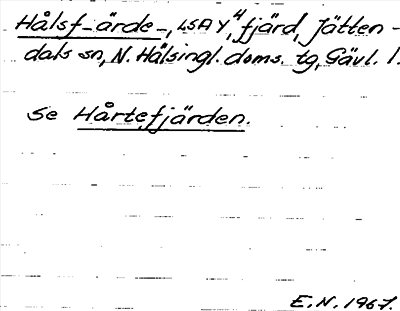 Hålsf-ärde-, LSA Y⁴, fjärd, Jätten-
dals sn, N. Hälsingl. doms. tg, Gävl. l.
se Hårtefjärden.
E.N. 1967.